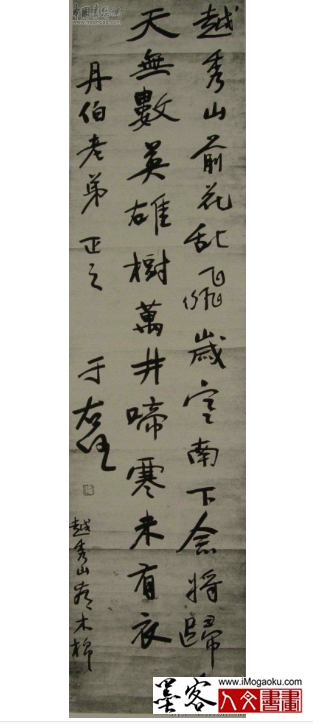 越秀山前花乱飛歲寒南下念將歸
天無數英雄樹萬井啼寒未有衣
丹伯老弟正之
于右任
越秀山產木棉
墨客
人文書畫
www.iMogaoku.com